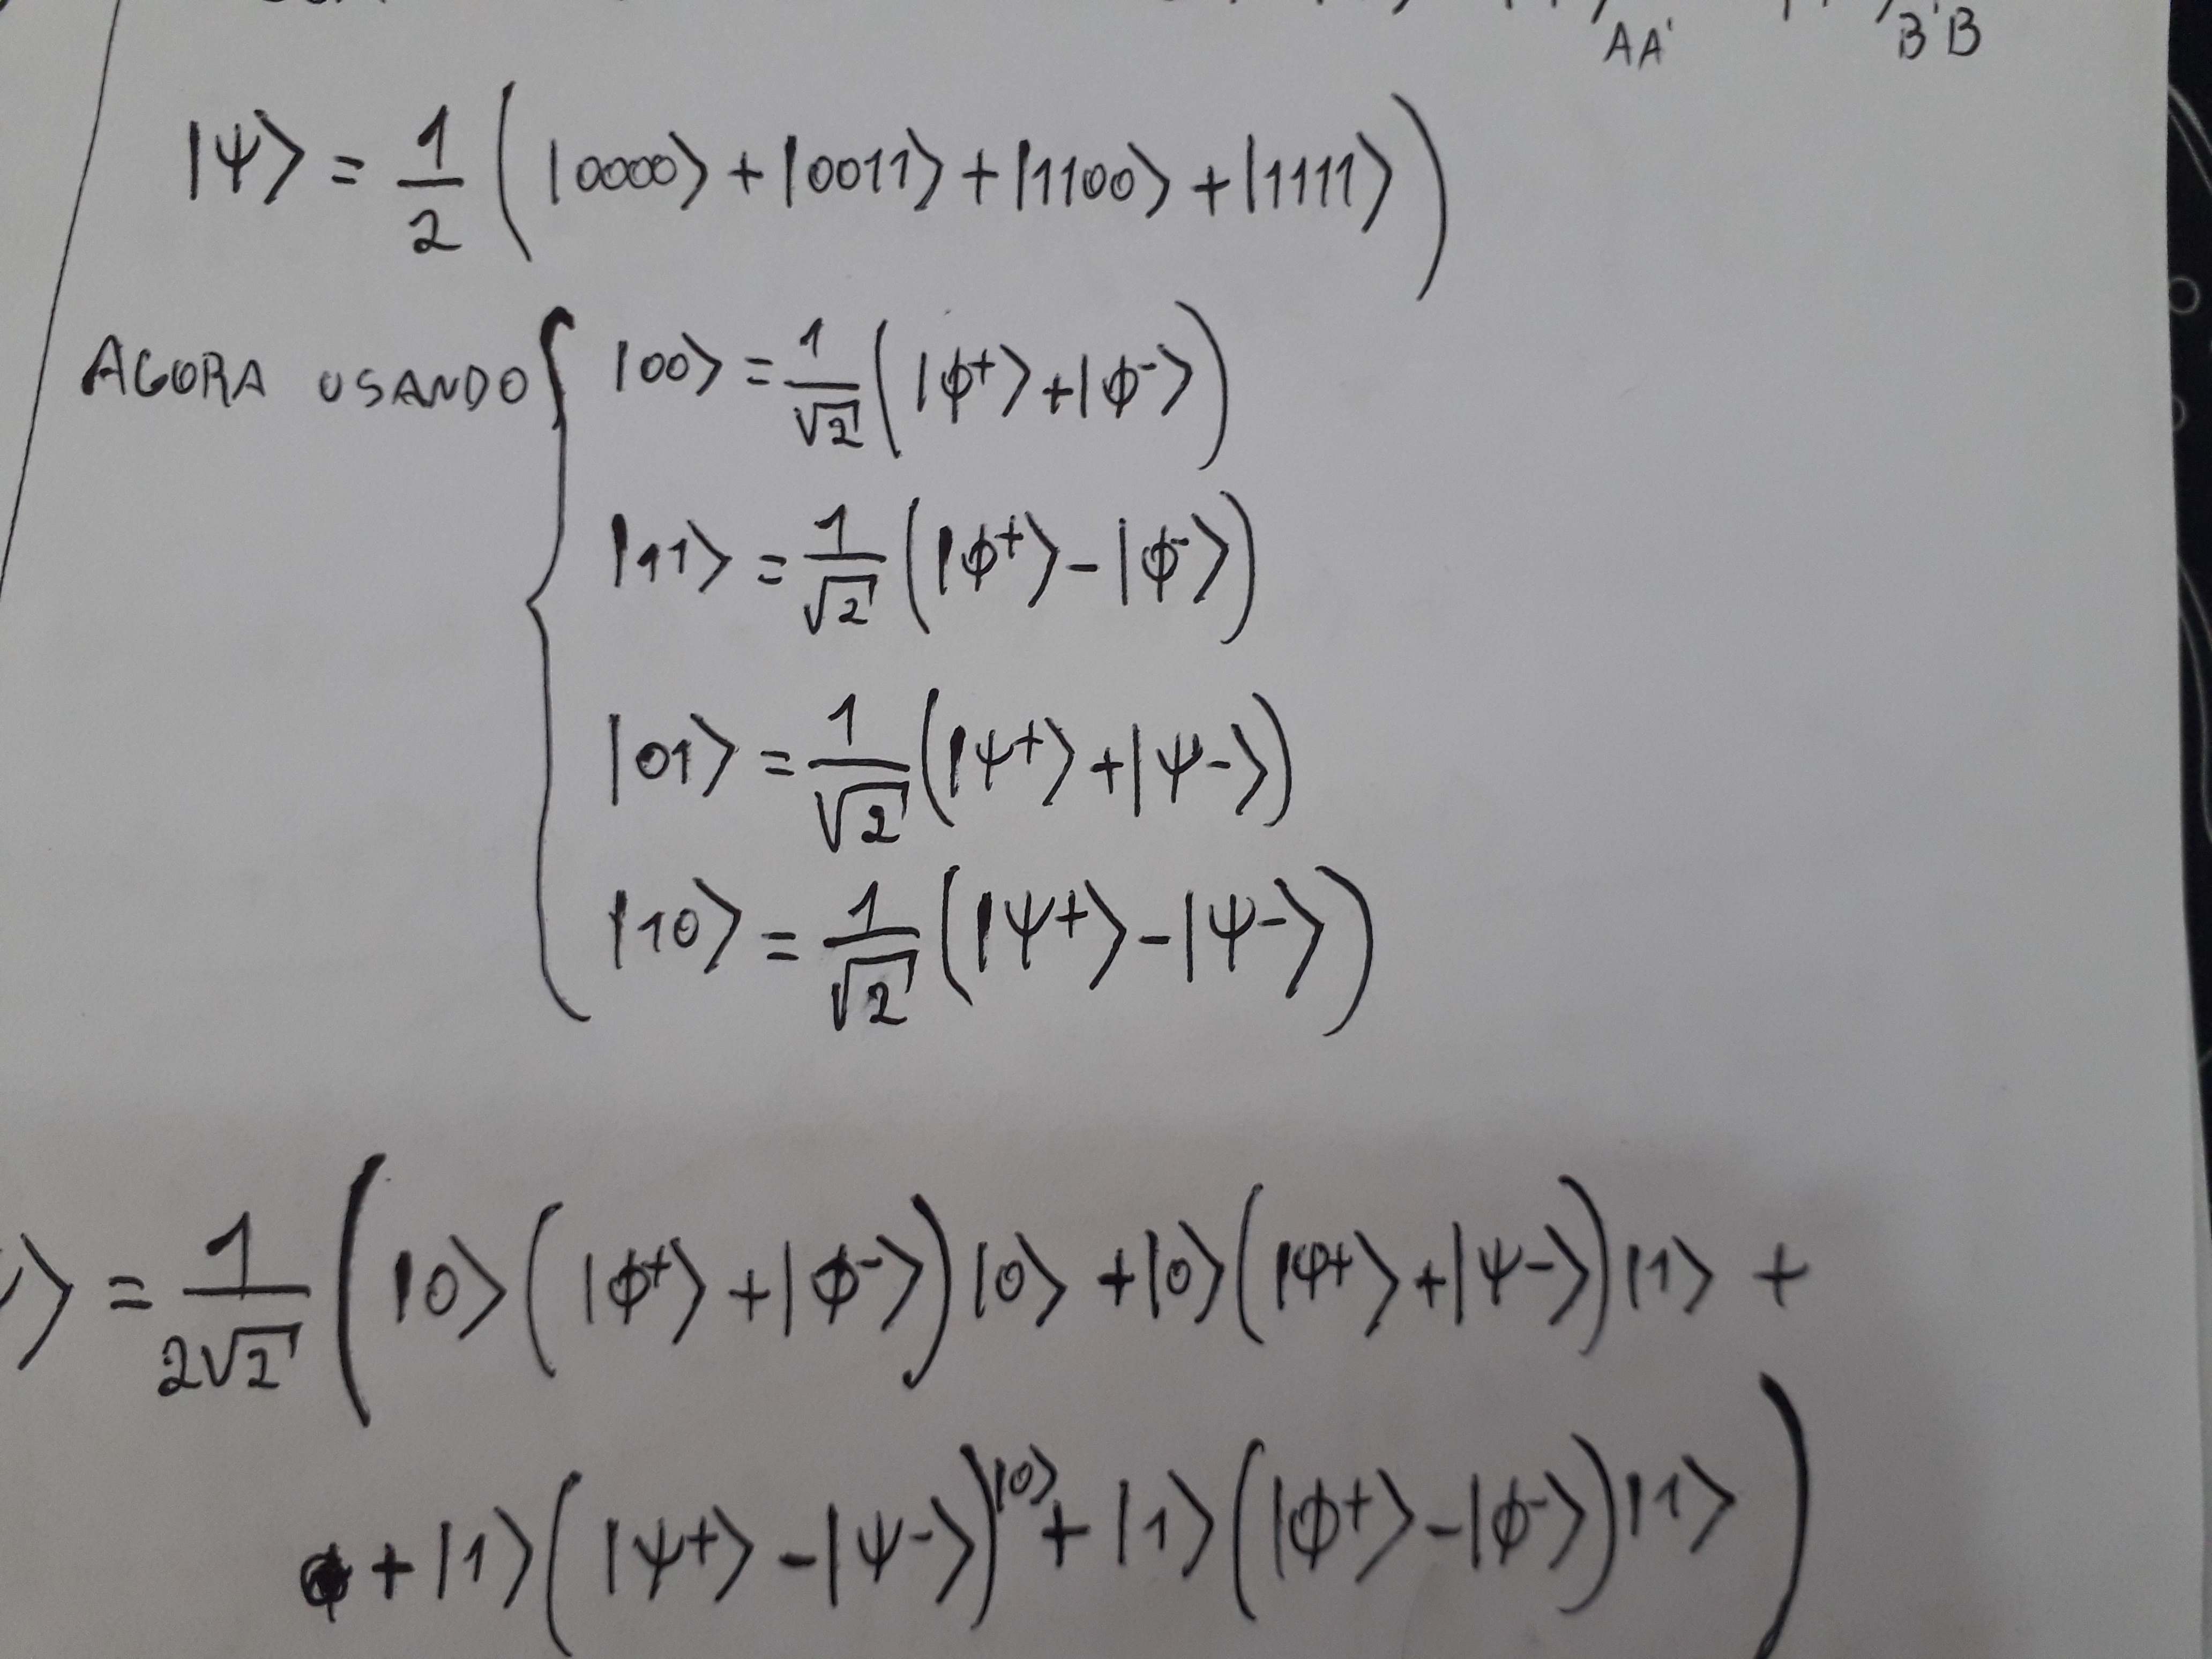 AA' B'B
|ψ⟩ = 1/2 (|0000⟩ + |0011⟩ + |1100⟩ + |1111⟩)
AGORA USANDO { |00⟩ = 1/√2 (|ϕ+⟩ + |ϕ-⟩)
|11⟩ = 1/√2 (|ϕ+⟩ - |ϕ-⟩)
|01⟩ = 1/√2 (|ψ+⟩ + |ψ-⟩)
|10⟩ = 1/√2 (|ψ+⟩ - |ψ-⟩)
⟩ = 1/2√2 (|0⟩(|ϕ+⟩ + |ϕ-⟩)|0⟩ + |0⟩(|ψ+⟩ + |ψ-⟩)|1⟩ +
+ |1⟩(|ψ+⟩ - |ψ-⟩)|0⟩ + |1⟩(|ϕ+⟩ - |ϕ-⟩)|1⟩)